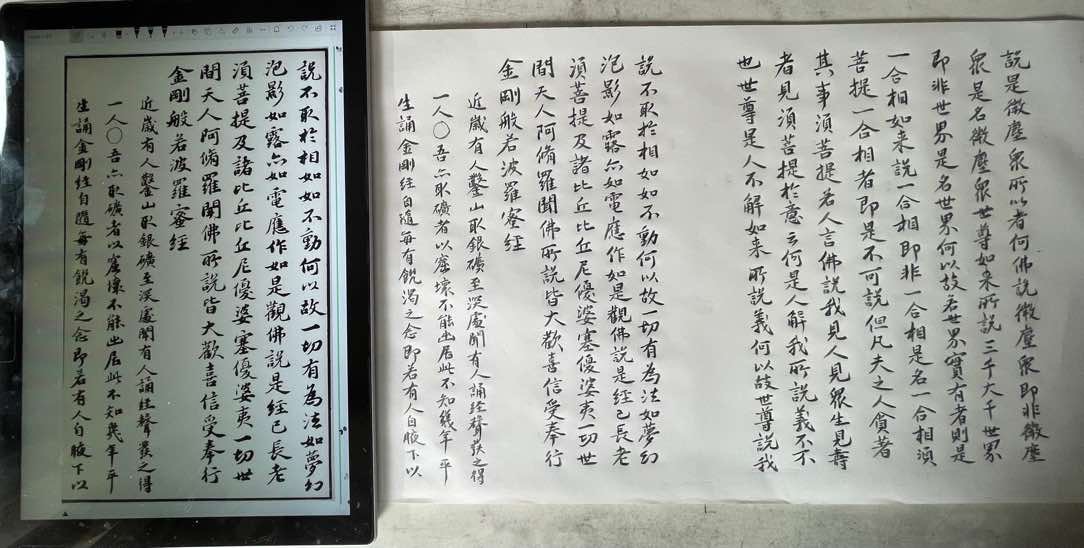 說是微塵眾所以者何佛說微塵眾即非微塵
眾是名微塵眾世尊如來所說三千大千世界
即非世界是名世界何以故若世界實有者則是
一合相如来說一合相即非一合相是名一合相須
菩提一合相者即是不可說但凡夫之人貪著
其事須菩提若人言佛說我見人見眾生見壽
者見須菩提於意云何是人解我所說義不不
也世尊是人不解如来所說義何以故世尊說我
說不取於相如如不動何以故一切有為法如夢幻
泡影如露亦如電應作如是觀佛說是經已長老
須菩提及諸比丘比丘尼優婆塞優婆夷一切世
間天人阿脩羅聞佛所說皆大歡喜信受奉行
金剛般若波羅蜜經
近歲有人鑿山取銀礦至深處聞有人誦經聲發之得
一人〇吾亦取礦者以窟壞不能出居此不知幾年平
生誦金剛經自隨每有飢渴之念即若有人自腋下以
說不取於相如如不動何以故一切有為法如夢幻
泡影如露亦如電應作如是觀佛說是經已長老
須菩提及諸比丘比丘尼優婆塞優婆夷一切世
間天人阿脩羅聞佛所說皆大歡喜信受奉行
金剛般若波羅蜜經
近歲有人鑿山取銀礦至深處聞有人誦經聲發之得
一人〇吾亦取礦者以窟壞不能出居此不知幾年平
生誦金剛經自隨每有飢渴之念即若有人自腋下以